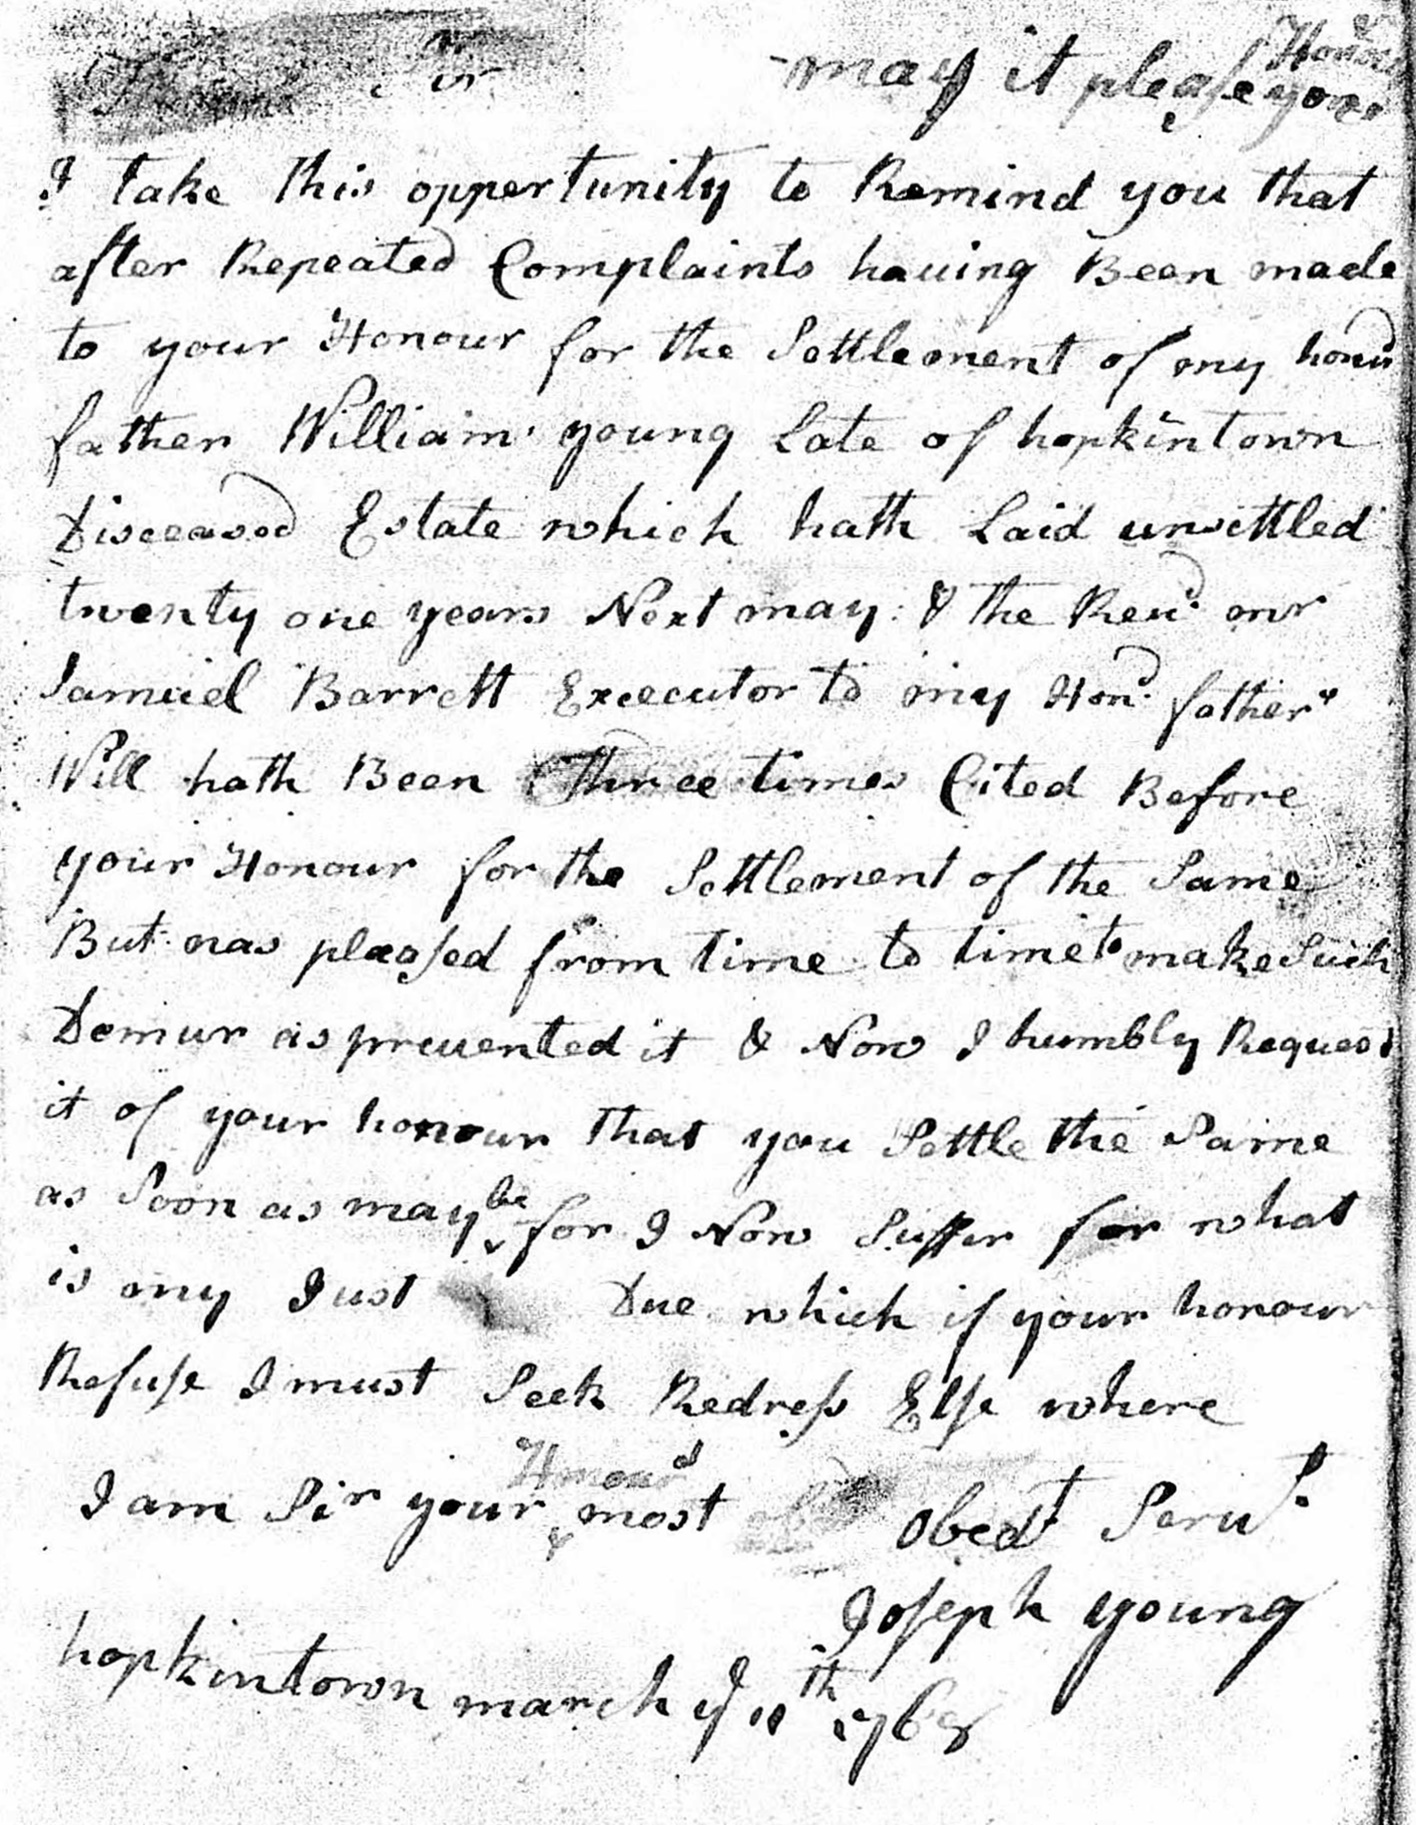 Sir may it please your Honour
I take this opportunity to Remind you that
after Repeated Complaints hauing Been made
to your Honour for the Settlement of my honrd
father William young Late of hopkintown
Disceased Estate which hath Laid unsettled
twenty one years Next may: & the Reud. mr
Samuel Barrett Excecutor to my Hond. fathers
Will hath Been Three times Cited Before
your Honour for the Settlement of the Same
But was pleased from time to time to make Such
Demur as preuented it & Now I humbly Request
it of your honour that you Settle the Same
as Soon as may be for I Now Suffer for what
is my Just Due which if your honour
Refuse I must Seek Redress Else where
I am Sir your Honours most obedt Serut.
Joseph young
hopkintown march ye 11th 1768